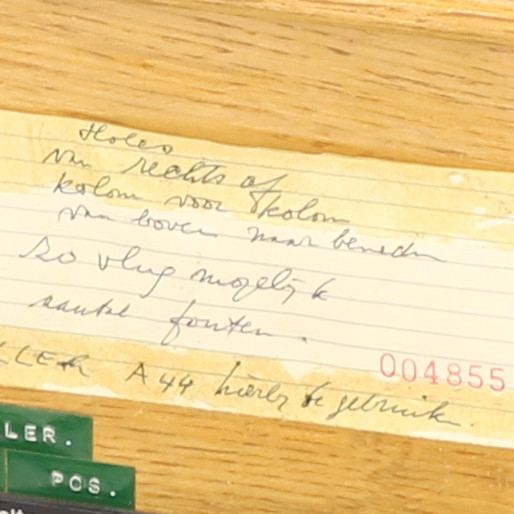 Holes
van rechts af
kolom voor kolom
van boven naar beneden
zo vlug mogelijk
aantal fouten.
004855
A44 hierby te gebruiken.
LER.
PCS.